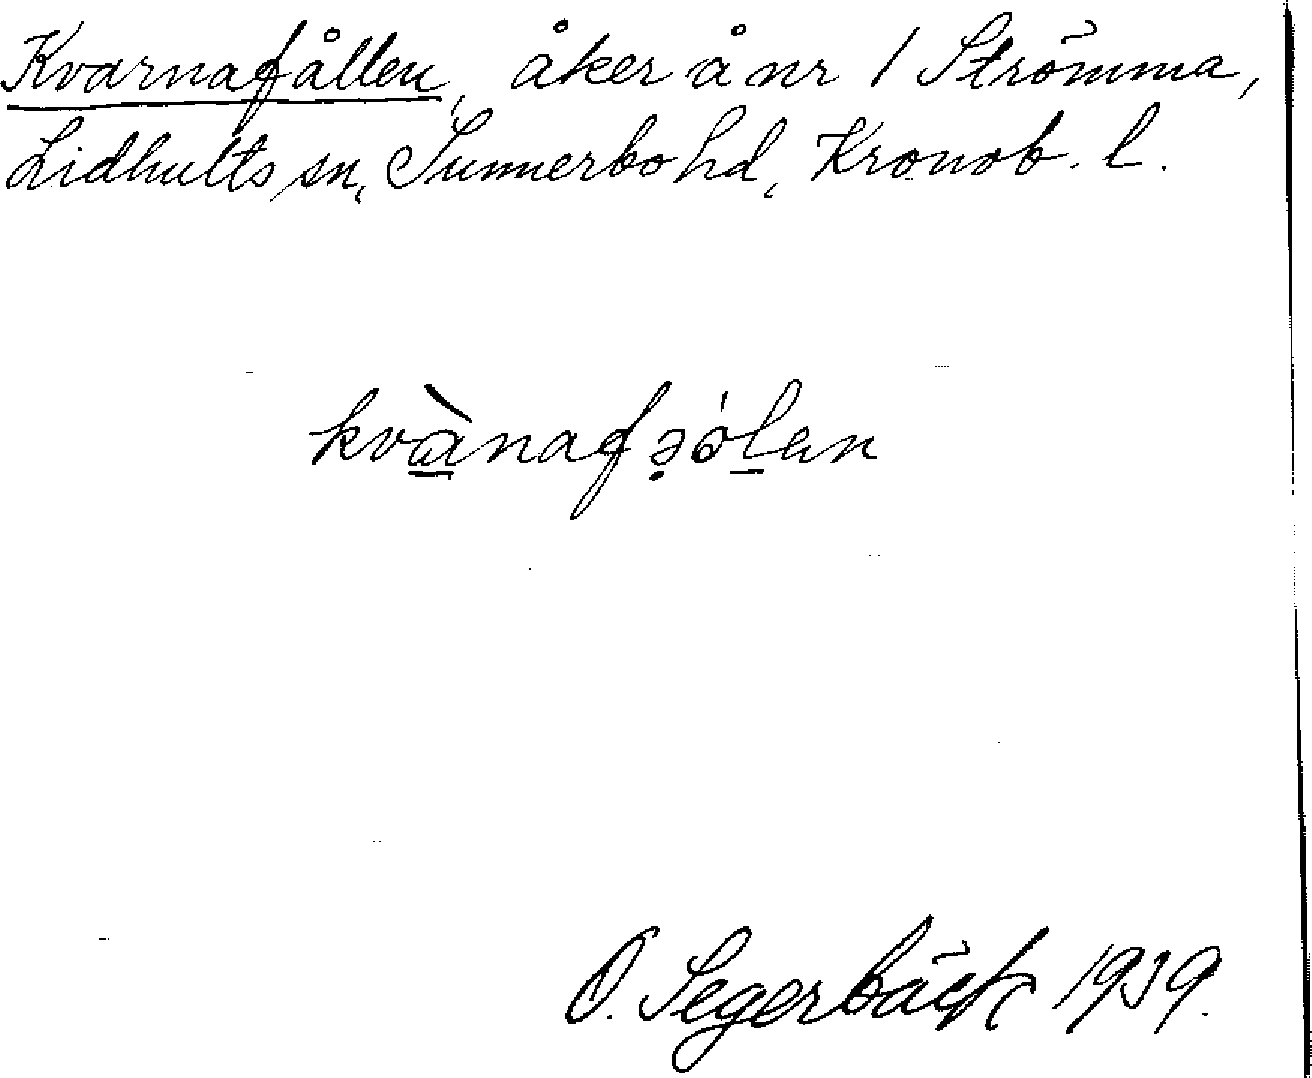 Kvarnafållen, åker å nr 1 Strömma,
Lidhults sn, Sunnerbo hd, Kronob. l.
kvànafə̣ólen
O. Segerbäck 1939.